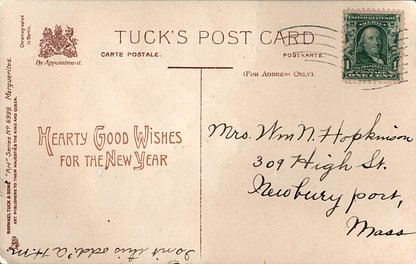 TUCK'S POST CARD
CARTE POSTALE.
POSTKARTE.
(For Address Only).
By Appointment.
Chromographed
in Berlin.
RAPHAEL TUCK & SONS' "Art" Series Nº 6899. Marguerites.
ART PUBLISHERS TO THEIR MAJESTIES THE KING AND QUEEN.
HEARTY GOOD WISHES
FOR THE NEW YEAR
Mrs. Wm N. Hopkinson
309 High St.
Newburyport,
Mass
Isn't this odd? A.H.